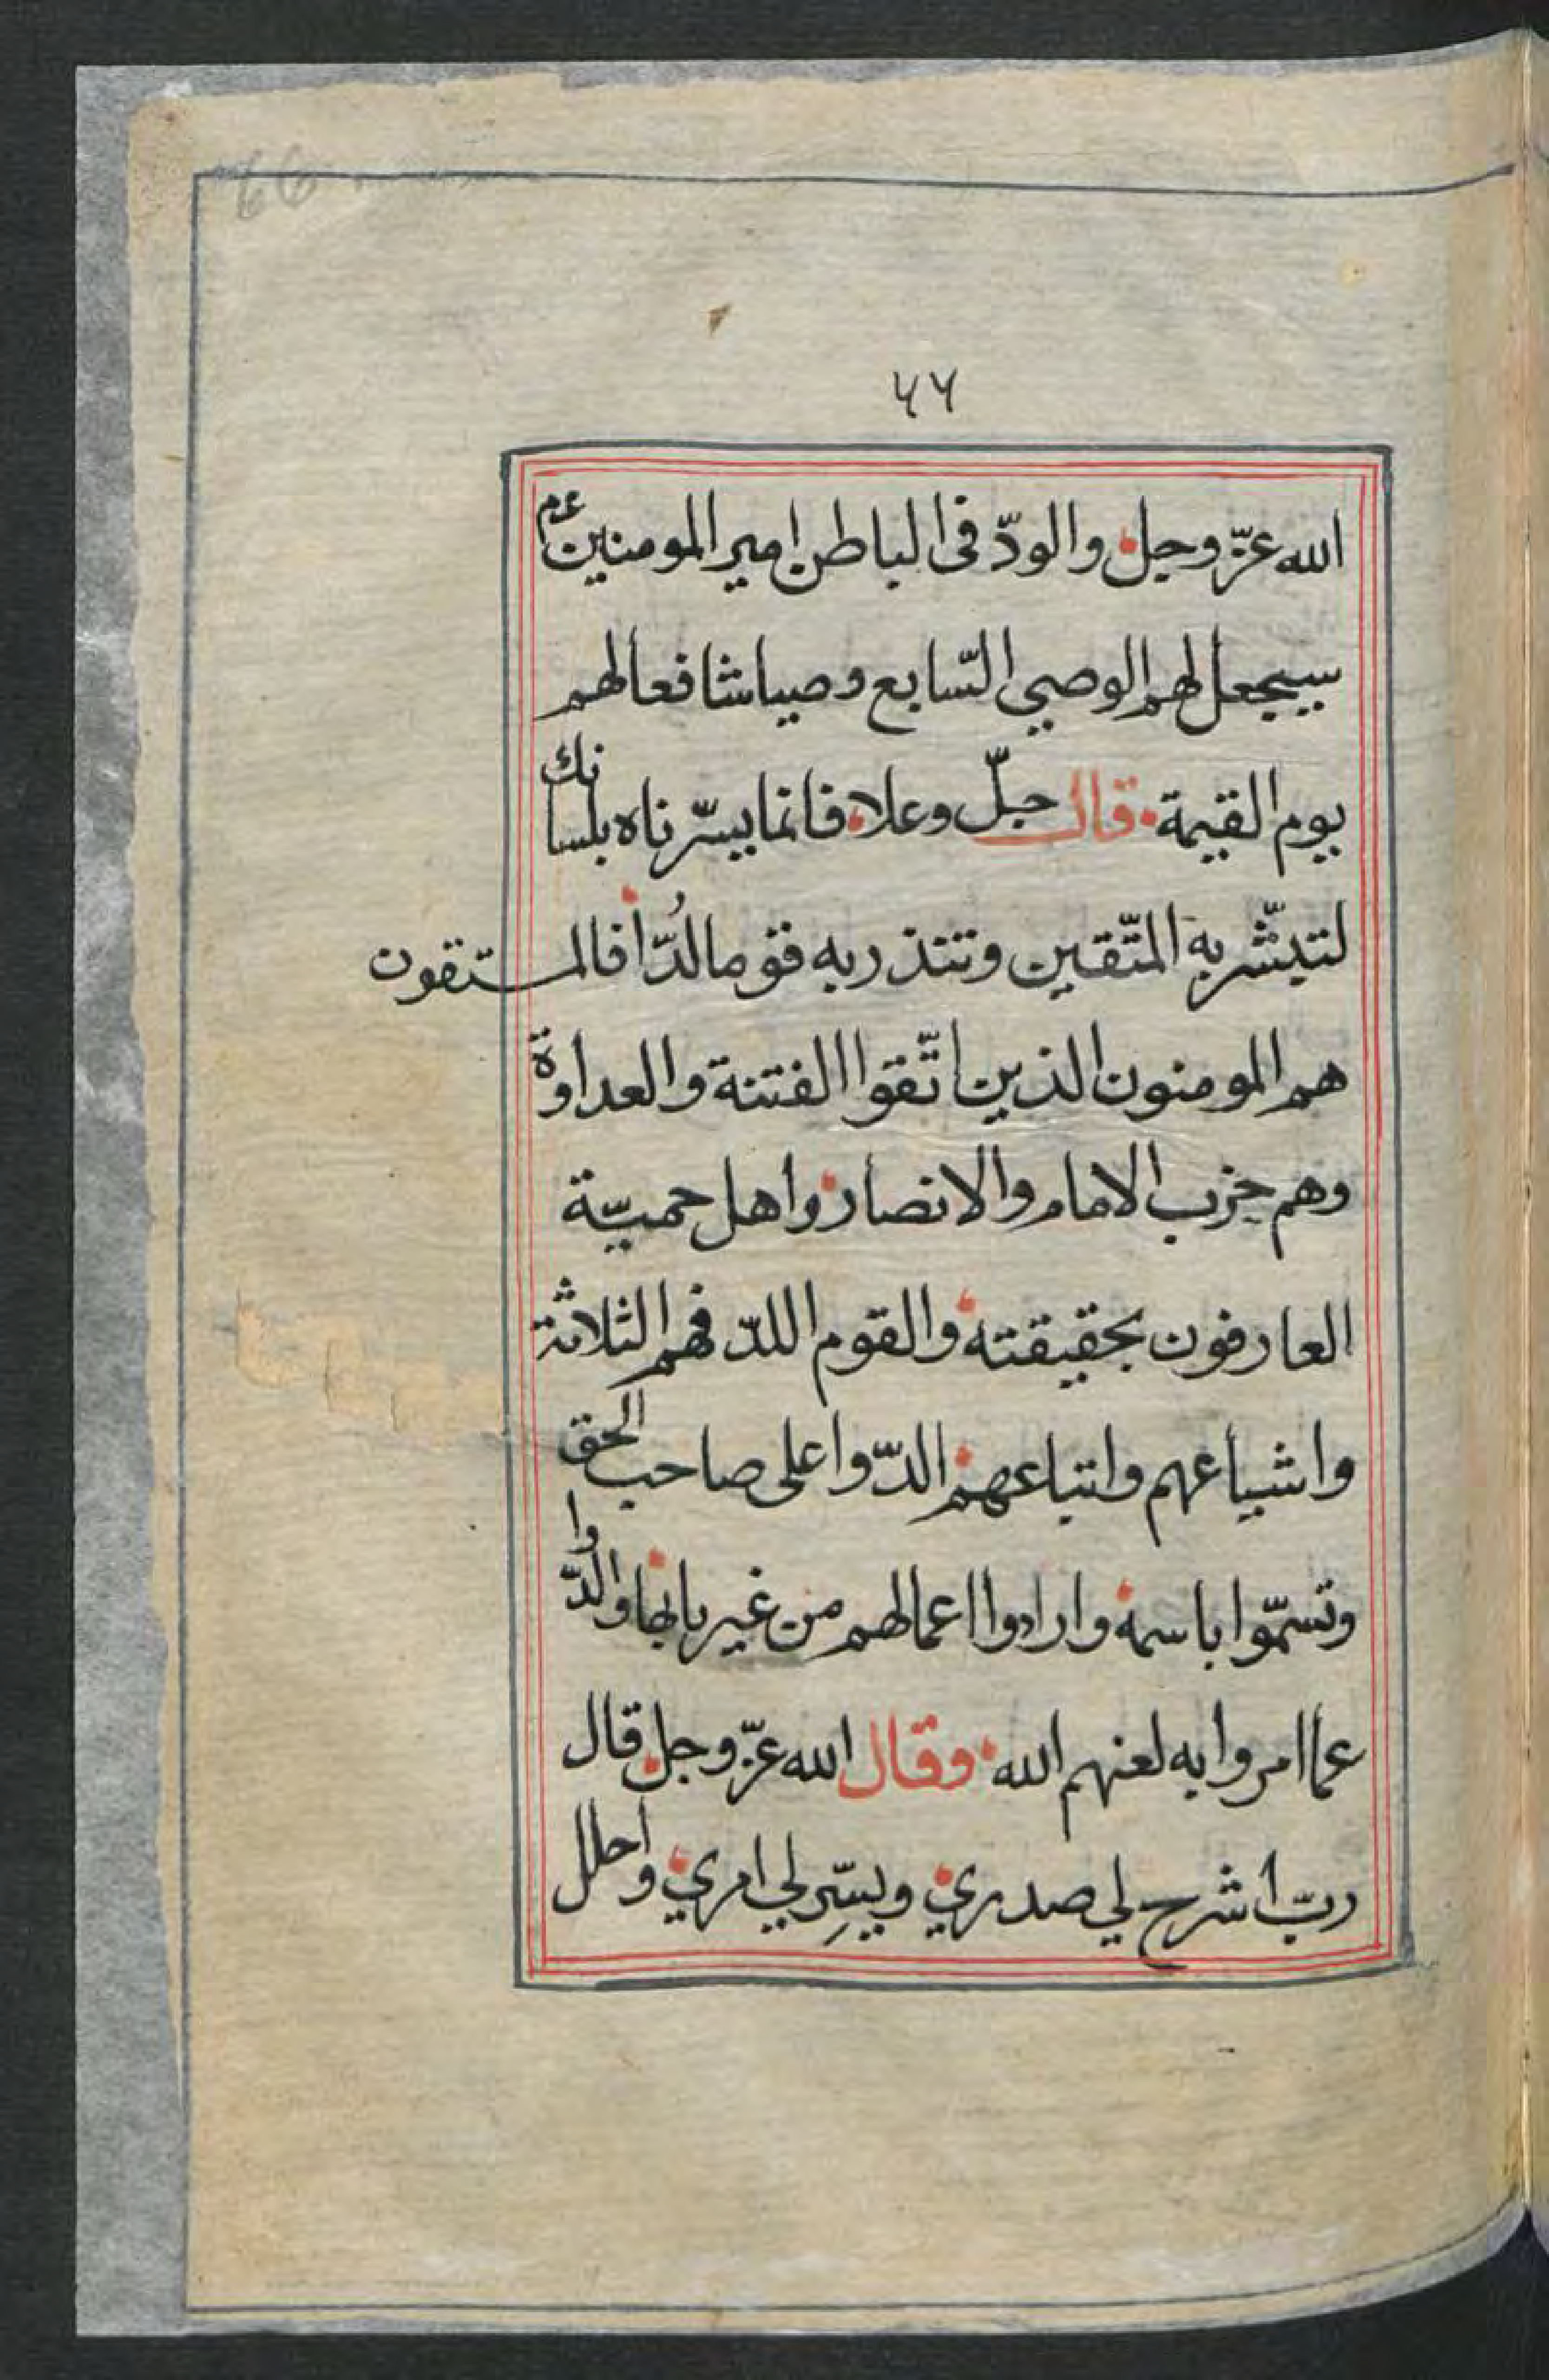 66
٦٦
الله عزّ وجل والودّ فى الباطن امير المومنين ع م
سيجعل لهم الوصي السّابع وصيا شافعا لهم
يوم القيمة قال جلّ وعلا فانما يسّرناه بلسانك
لتبشّر به المتّقين وتنذر به قوما لُدّا فالمتقون
هم المومنون الذين اتّقوا الفتنة والعداوة
وهم حزب الامام والانصار واهل حميّة
العارفون بحقيقته والقوم اللدّ فهم الثلاثة
واشياعهم واتباعهم الدّوا على صاحب الحق
وتسمّوا باسمه وارادوا اعمالهم من غير بابها والدّوا
عما امروا به لعنهم الله وقال الله عزّ وجل قال
ربّ اشرح لي صدري ويسِّر لي امري واحلل